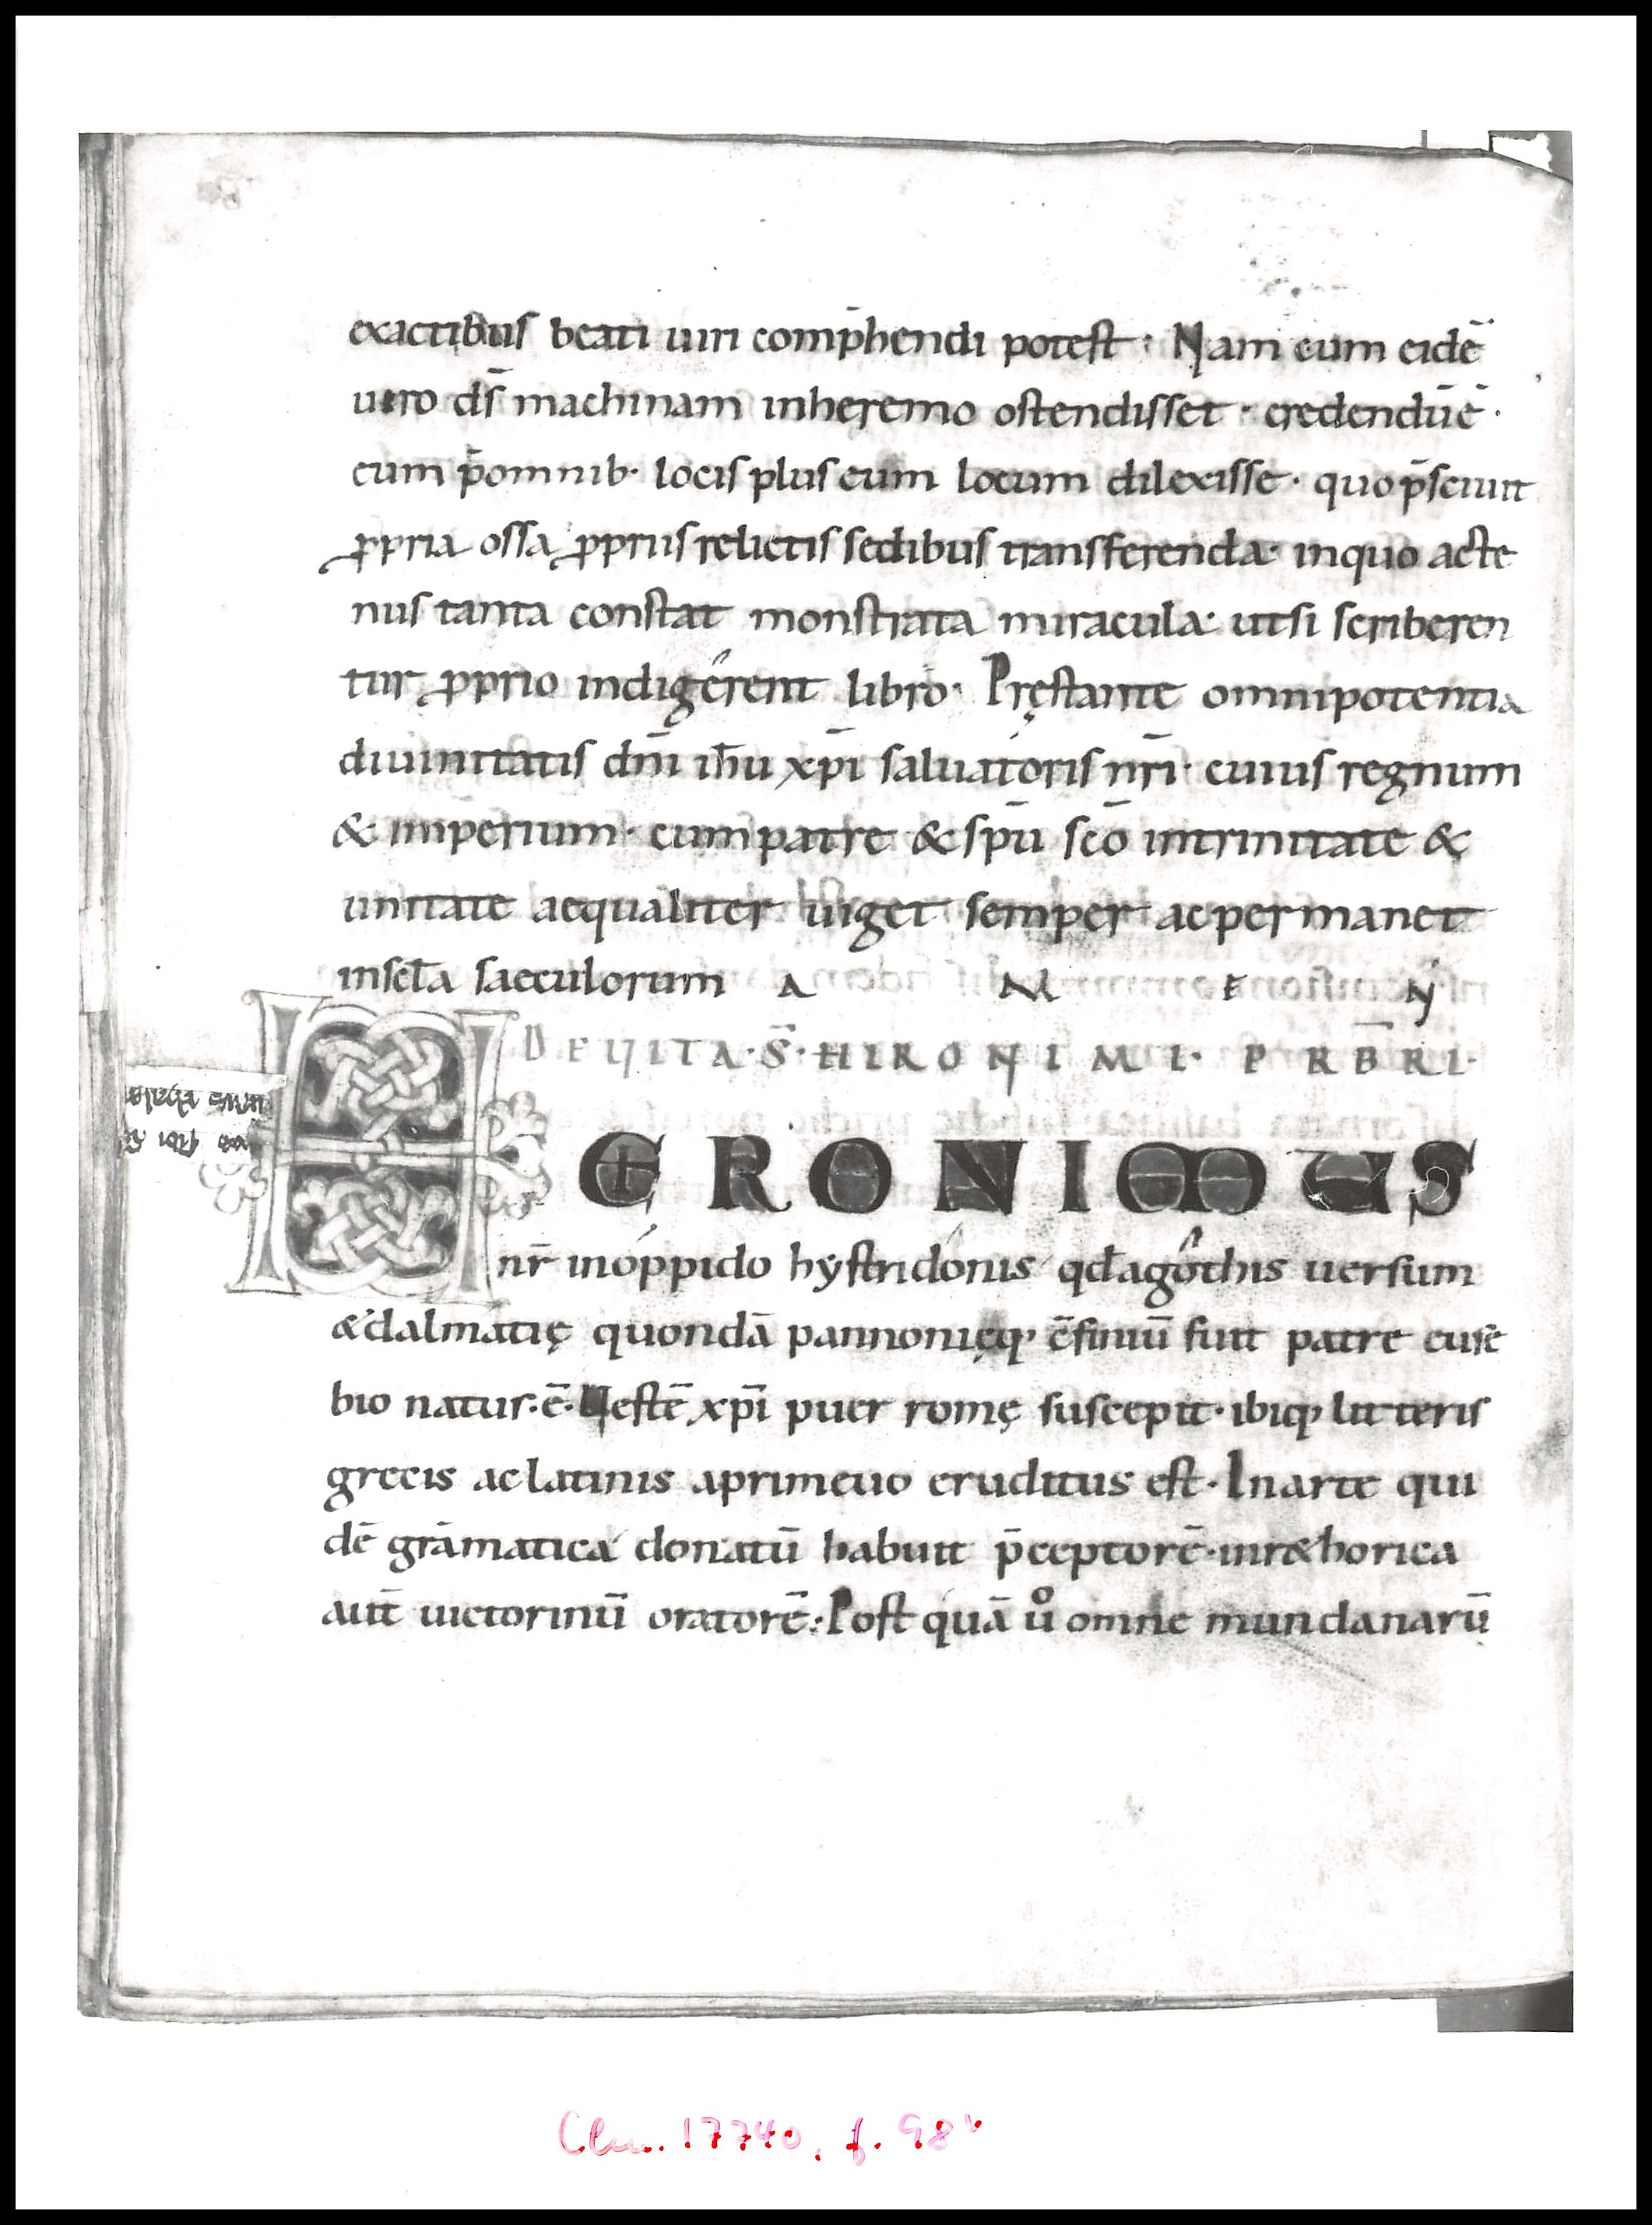 exactibus beati uiri comp̄hendi potest· Nam cum eidē
uiro ds̄ machinam inheremo ostendisset· credendū ē·
eum p̄omnib· locis plus eum locum dilexisse· quo p̄sciuit
ꝓpria ossa ꝓpriis relictis sedibus transferenda· inquo acte
nus tanta constat monstrata miracula· utsi scriberen
tur ꝓprio indigerent libro· Pręstante omnipotentia
diuinitatis dn̄i ih̄u xp̄i saluatoris nr̄i· cuius regnum
& imperium· cum patre & sp̄u sc̄o intrinitate &
unitate aequaliter uiget semper ac permanet
insc̄la saeculorum A M E N
DE UITA· S̄· HIRONIMI· PRB̄RI·
HERONIMUS
nr̄ inoppido hystridonis qđ agothis uersum
& dalmatię quondā pannonięq; ēfiniū fuit patre euse
bio natus· ē· Uestē xp̄i puer romę suscepit· ibiq; litteris
grecis ac latinis aprimeuo eruditus est· In arte qui
dē grāmatica donatū habuit p̄ceptorē· inr&horica
aut̄ uictorinū oratorē· Post quā uͦ omne mundanarū
Clm. 17740, f. 98v